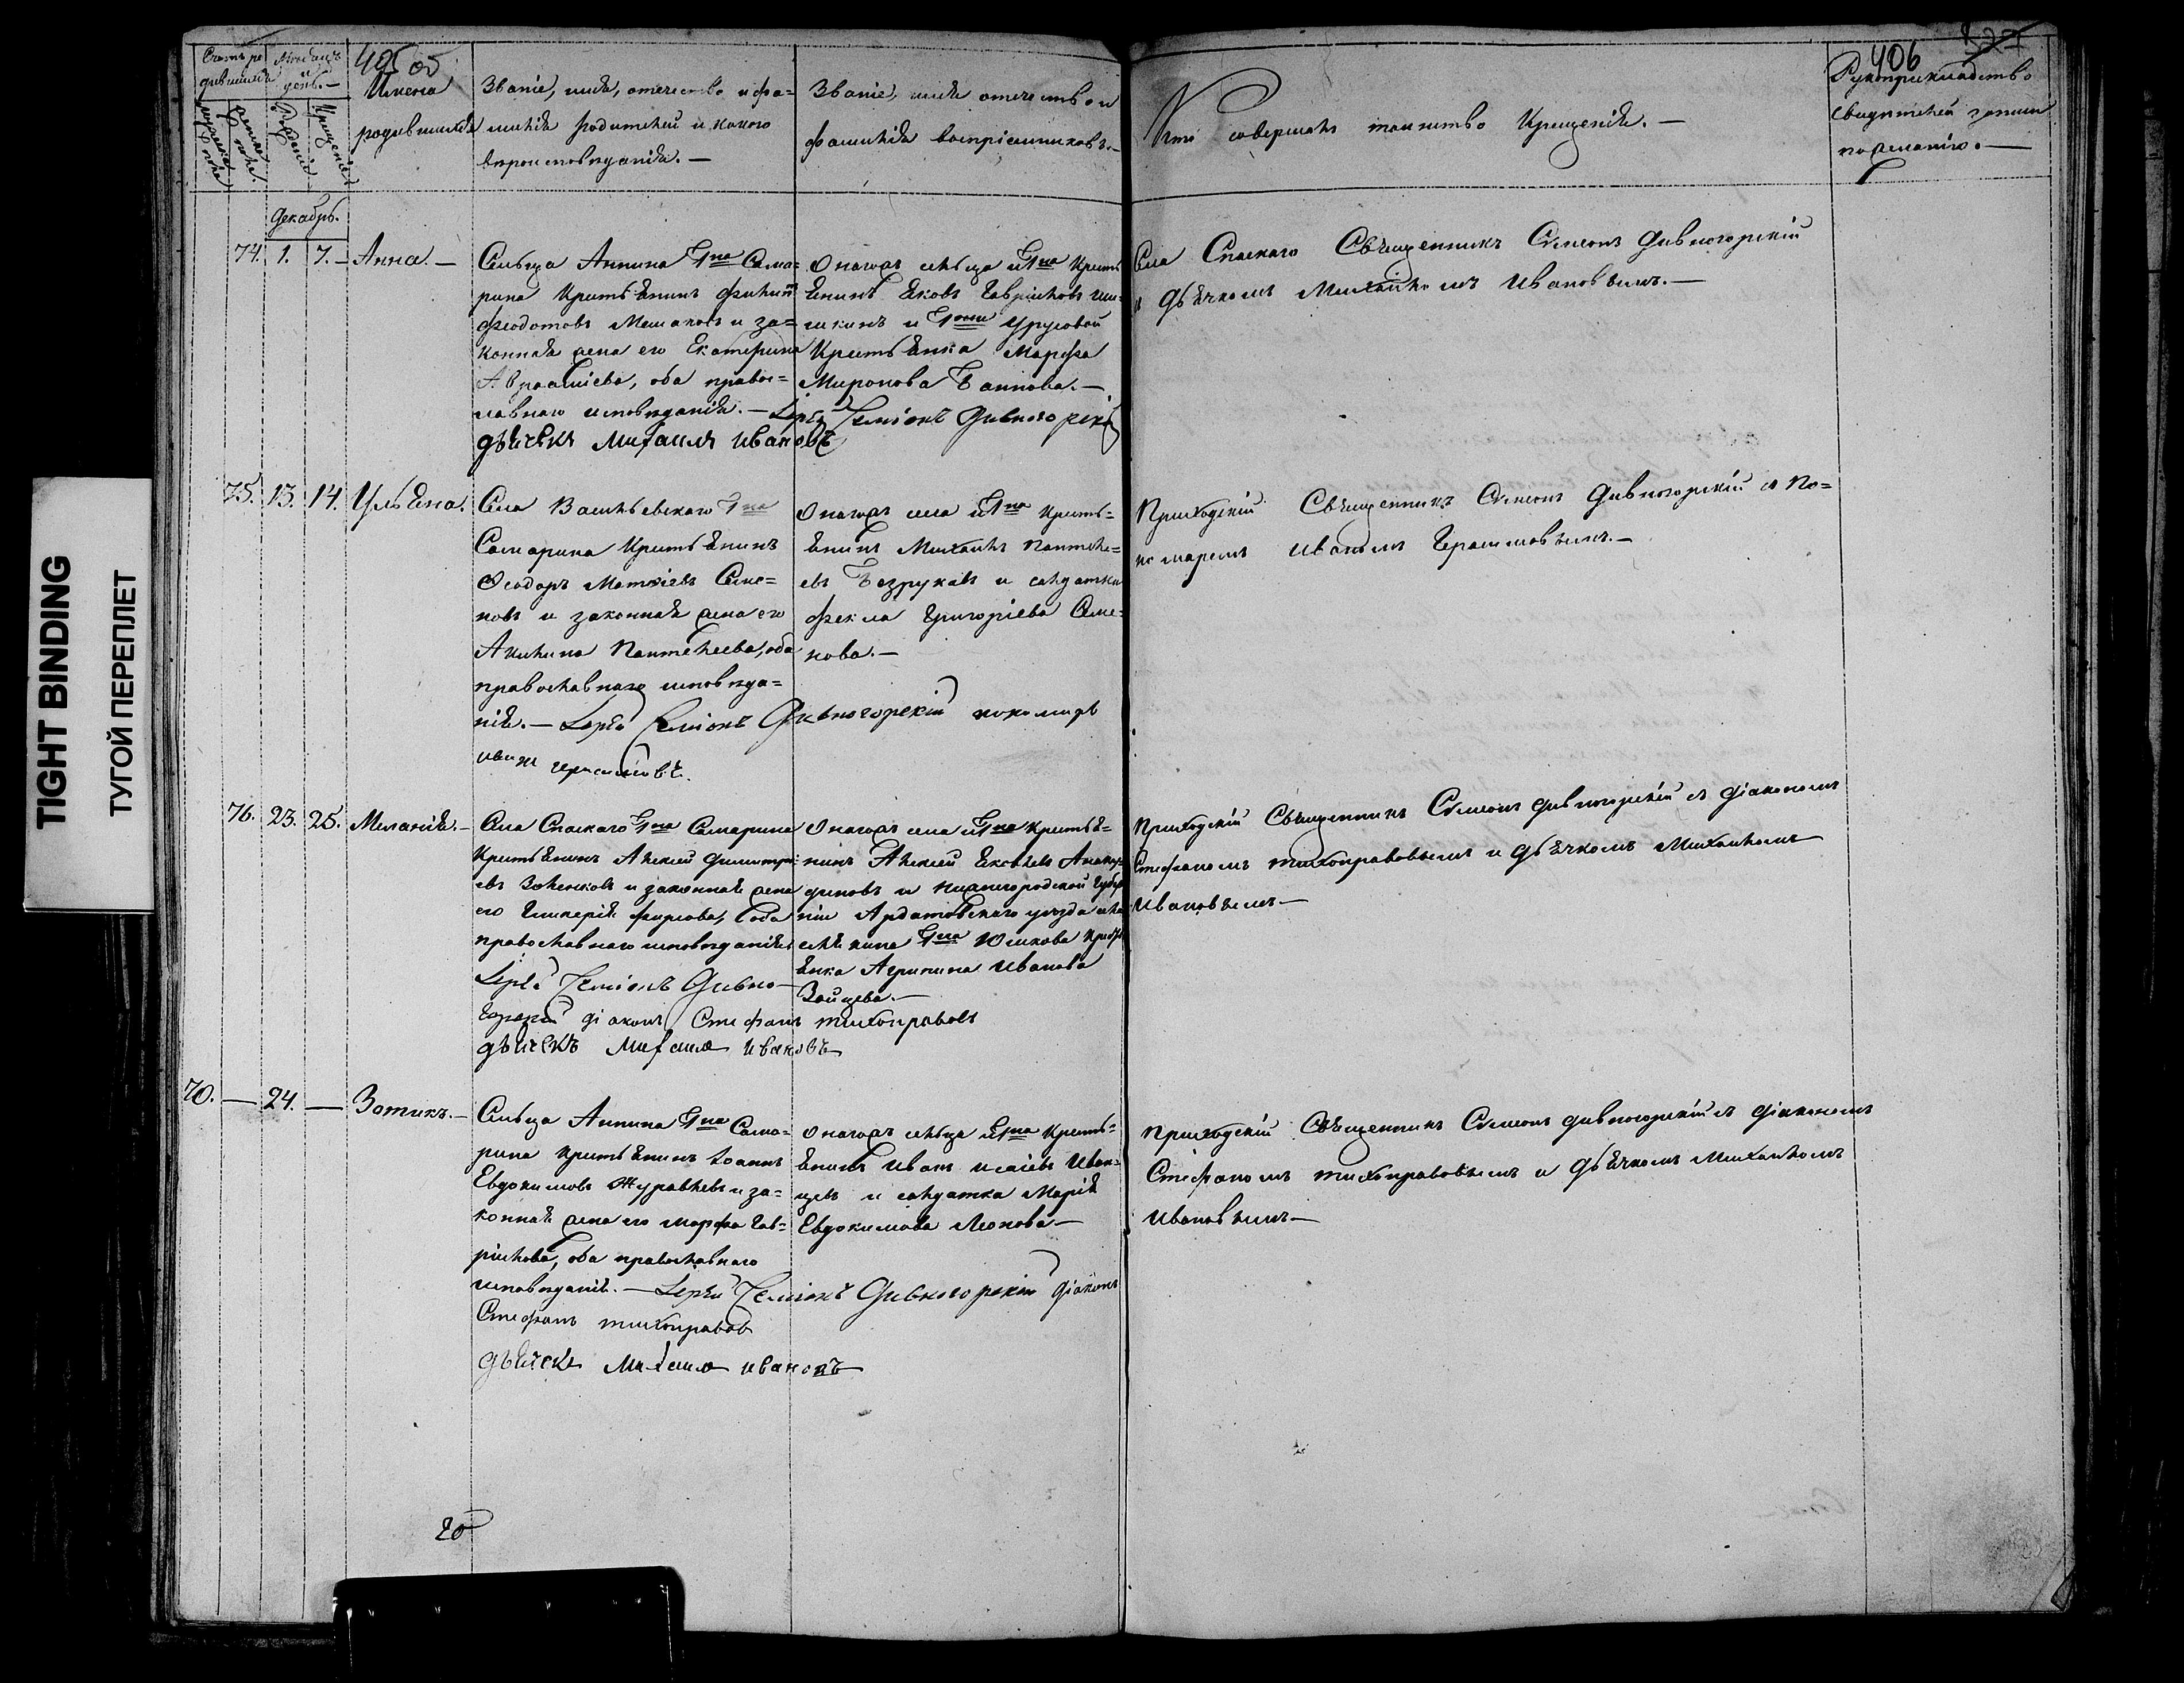 TIGHT BINDING
ТУГОЙ ПЕРЕПЛЕТ
405 об
406
Счетъ ро
дившихся
Мѣсяцъ
и
день.
мужеска
пола
женска
пола.
Рожденія
Крещенія
Имена
родившихся
Званіе, имя, отечество и фа=
милія родителей и какого
вѣроисповѣданія. —
Званіе, имя отечество и
фамилія воспріемниковъ. —
Кто совершалъ таинство Крещенія. —
Рукоприкладство
свидѣтелей записи
по желанію. —
Декабрь.
74. 1. 7. — Анна. —
Сельца Аннина Гна Сама=
рина Крестьянинъ Филипъ
Феодотовъ Мешаковъ и за=
конная жена его Екатерина
Авраамiева, оба правос=
лавнаго исповѣданія. — Іерей Симеонъ Дивногорскій
дьячекъ Михаилъ Ивановъ
Онагожъ сельца и Гна Кресть
янинъ Яковъ Гавриловъ Ши=
шкинъ и Гжи Урусовой
Крестьянка Марфа
Миронова Баннова. —
Села Спаскаго Священникъ Симеонъ Дивногорскій
и дьячкомъ Михайломъ Ивановымъ. —
75. 13. 14. Ульяна.
Села Васильевскаго Гна
Самарина Крестьянинъ
Ѳеодоръ Матвіевъ Семе=
новъ и законная жена его
Акилина Пантелеева, оба
православнаго исповѣда=
нія. — Іерей Симеонъ Дивногорскій пономарь
Иванъ Герасимовъ.
Онагожъ села и Гна Кресть=
янинъ Михаилъ Пантеле=
евъ Безруковъ и солдатка
Фекла Григоріева Семе=
нова. —
Приходскій Священникъ Симеонъ Дивногорскій съ По=
номаремъ Иваномъ Герасимовымъ. —
76. 23. 25. Меланія. —
Села Спаскаго Гна Самарина
Крестьянинъ Алексей Димитрі=
евъ Зеленковъ и законная жена
его Гликерія Фирсова, оба
православнаго исповѣданія
Іерей Симеонъ Дивно
горскій діаконъ Стефанъ Тихонравовъ
дьячекъ Михаилъ Ивановъ
Онагожъ села и Гна Крестья=
нинъ Алексей Яковлевъ
диновъ и Нижегородской Губер
ніи Ардатовскаго уѣзда
Гна Юшкова Кресть
янка Агрипина Иванова
Зайцева. —
Приходскій Священникъ Симеонъ Дивногорскій съ діакономъ
Стефаномъ Тихонравовымъ и дьячкомъ Михайломъ
Ивановымъ —
70. — 24. — Зотикъ. —
Сельца Аннина Гна Сама=
рина Крестьянинъ Іоаннъ
Евдокимовъ Журавлевъ и за=
конная жена его Марфа Гав=
рилова, оба православнаго
исповѣданія. — Іерей Симеонъ Дивногорскій діаконъ
Стефанъ Тихонравовъ
дьячекъ Михаилъ Ивановъ
Онагожъ сельца и Гна Кресть=
янинъ Иванъ Исаіевъ Иван=
цевъ и солдатка Марія
Евдокимова Леонова —
Приходскій Священникъ Симеонъ Дивногорскій съ діакономъ
Стефаномъ Тихонравовымъ и дьячкомъ Михайломъ
Ивановымъ —